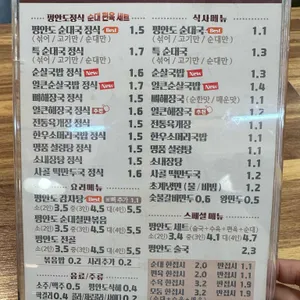 평안도정식 순대 편육 세트
평안도 순대국 정식 Best 1.5
(섞어 / 고기만 / 순대만)
특 순대국 정식 1.7
(섞어 / 고기만 / 순대만)
순살국밥 정식 New 1.6
얼큰순살국밥 정식 New 1.6
뼈해장국 정식 1.5
얼큰해장국 정식 1.6
전통육개장 정식 1.5
한우소머리국밥 정식 1.6
명품 설렁탕 정식 1.5
소내장탕 정식 1.5
사골 떡만두국 정식 1.5
요리메뉴
평안도 감자탕 Best
소(2인) 3.5 중(3인) 4.5 대(4인) 5.5
평안도 순대철판볶음
소(2인) 3.5 중(3인) 4.5 대(4인) 5.5
평안도 전골
소(2인) 3.5 중(3인) 4.5 대(4인) 5.5
볶음밥 0.2 사리추가 0.2
음료/주류
소주/맥주 0.5 평안도식혜 0.4
식사메뉴
평안도 순대국 Best 1.1
(섞어 / 고기만 / 순대만)
특 순대국 1.3
(섞어 / 고기만 / 순대만)
순살국밥 New 1.2
얼큰순살국밥 New 1.2
뼈해장국 (순한맛 / 매운맛) 1.1
얼큰해장국 1.2
전통육개장 1.1
한우소머리국밥 1.2
명품 설렁탕 1.1
소내장탕 1.1
사골 떡만두국 1.1
초계냉면 (물 / 비빔) 1.2
숯불갈비만두 0.6 왕만두 0.5
스페셜 메뉴
평안도 세트 (술국 + 수육 + 편육 + 순대)
소(2인) 3.4 중(3인) 4.1 대(4인) 4.7
평안도 술국 2.3
순대 한접시 2.0 반접시 1.1